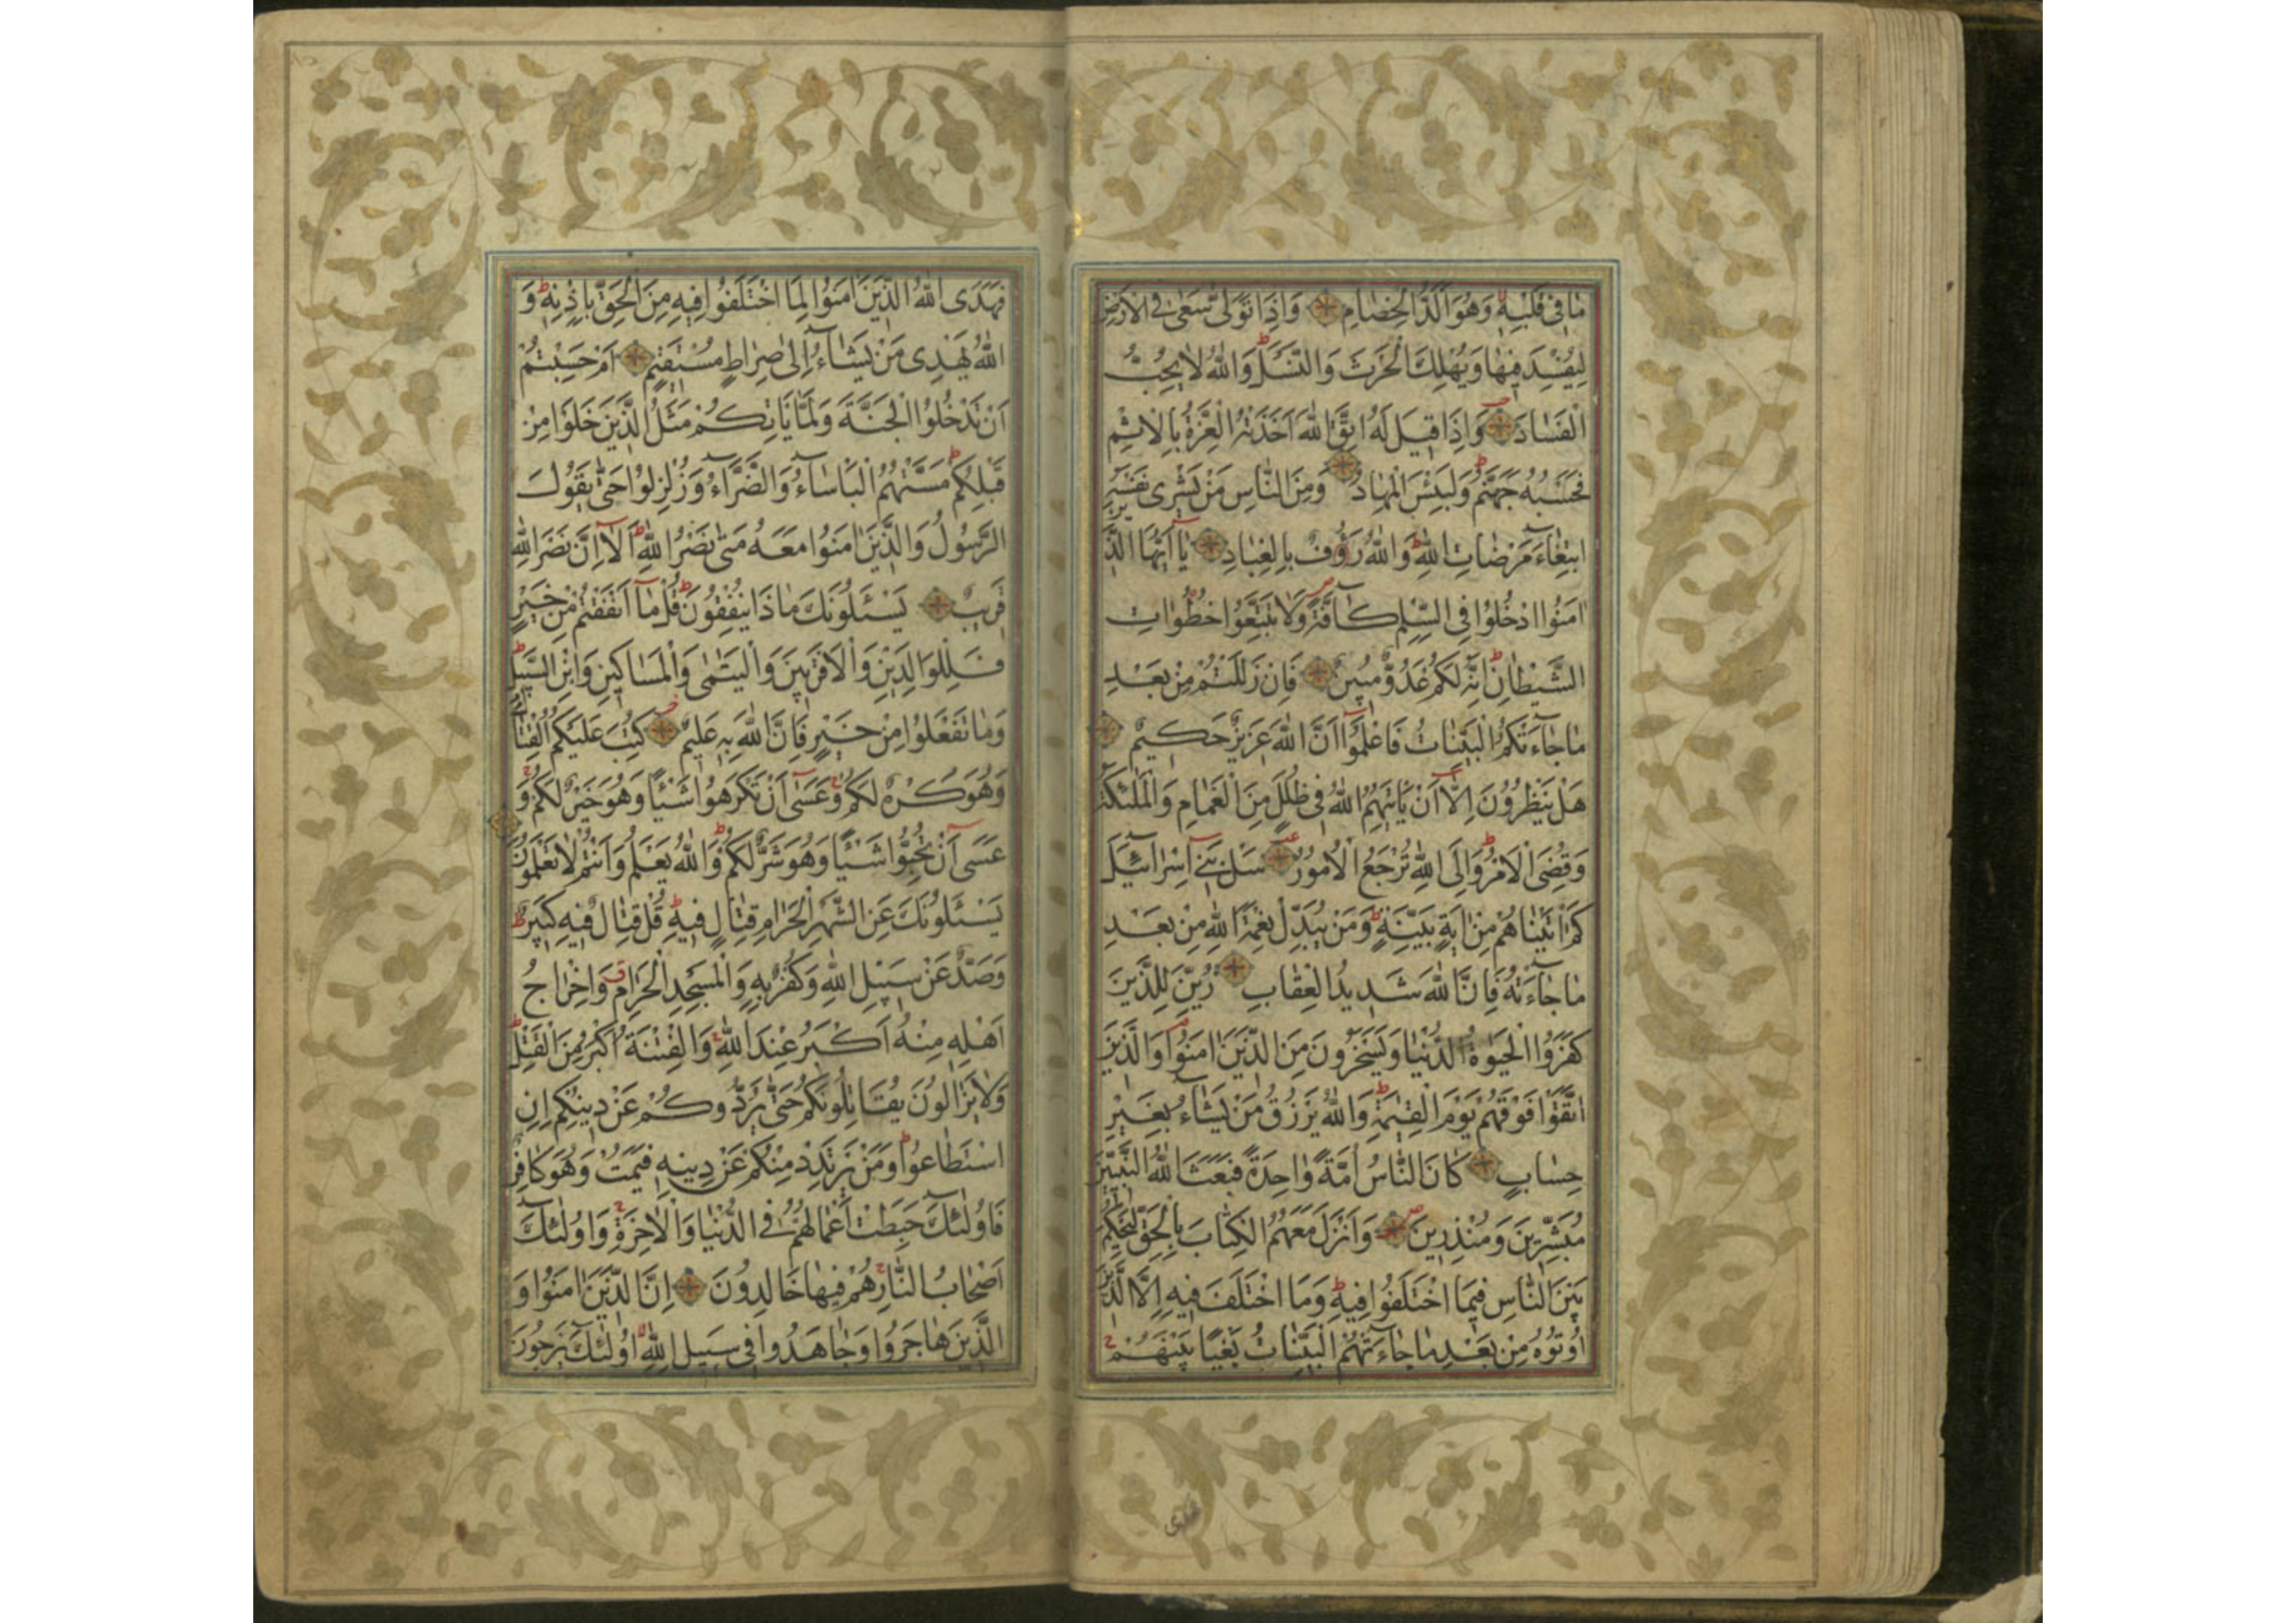 مٰا فِى قَلْبِهِ وَهُوَ اَلَدُّ الْخِصٰامِ وَاِذَا تَوَلّٰى سَعٰى فِى الْاَرْضِ
لِيُفْسِدَ فِيهٰا وَيُهْلِكَ الْحَرْثَ وَالنَّسْلَ ط وَاللّٰهُ لٰا يُحِبُّ
الْفَسٰادَ وَاِذَا قِيلَ لَهُ اتَّقِ اللّٰهَ اَخَذَتْهُ الْعِزَّةُ بِالْاِثْمِ
فَحَسْبُهُ جَهَنَّمُ ط وَلَبِئْسَ الْمِهٰادُ وَمِنَ النّٰاسِ مَنْ يَشْرِى نَفْسَهُ
ابْتِغٰاءَ مَرْضٰاتِ اللّٰهِ ط وَاللّٰهُ رَؤُفٌ بِالْعِبٰادِ يٰا اَيُّهَا الَّذِينَ
اٰمَنُوا ادْخُلُوا فِى السِّلْمِ كٰافَّةً ص وَلٰا تَتَّبِعُوا خُطُوٰاتِ
الشَّيْطٰانِ ط اِنَّهُ لَكُمْ عَدُوٌّ مُبِينٌ فَاِنْ زَلَلْتُمْ مِنْ بَعْدِ
مٰا جٰاءَتْكُمُ الْبَيِّنٰاتُ فَاعْلَمُوا اَنَّ اللّٰهَ عَزِيزٌ حَكِيمٌ
هَلْ يَنْظُرُونَ اِلّٰا اَنْ يَاْتِيَهُمُ اللّٰهُ فِى ظُلَلٍ مِنَ الْغَمٰامِ وَالْمَلٰئِكَةُ
وَقُضِىَ الْاَمْرُ ط وَاِلَى اللّٰهِ تُرْجَعُ الْاُمُورُ سَلْ بَنِى اِسْرٰائِيلَ
كَمْ اٰتَيْنٰاهُمْ مِنْ اٰيَةٍ بَيِّنَةٍ ط وَمَنْ يُبَدِّلْ نِعْمَةَ اللّٰهِ مِنْ بَعْدِ
مٰا جٰاءَتْهُ فَاِنَّ اللّٰهَ شَدِيدُ الْعِقٰابِ زُيِّنَ لِلَّذِينَ
كَفَرُوا الْحَيٰوةُ الدُّنْيٰا وَيَسْخَرُونَ مِنَ الَّذِينَ اٰمَنُوا وَالَّذِينَ
اتَّقَوْا فَوْقَهُمْ يَوْمَ الْقِيٰمَةِ ط وَاللّٰهُ يَرْزُقُ مَنْ يَشٰاءُ بِغَيْرِ
حِسٰابٍ كٰانَ النّٰاسُ اُمَّةً وٰاحِدَةً فَبَعَثَ اللّٰهُ النَّبِيِّينَ
مُبَشِّرِينَ وَمُنْذِرِينَ ص وَاَنْزَلَ مَعَهُمُ الْكِتٰابَ بِالْحَقِّ لِيَحْكُمَ
بَيْنَ النّٰاسِ فِيمَا اخْتَلَفُوا فِيهِ ط وَمَا اخْتَلَفَ فِيهِ اِلَّا الَّذِينَ
اُوتُوهُ مِنْ بَعْدِ مٰا جٰاءَتْهُمُ الْبَيِّنٰاتُ بَغْيًا بَيْنَهُمْ ج
فَهَدَى اللّٰهُ الَّذِينَ اٰمَنُوا لِمَا اخْتَلَفُوا فِيهِ مِنَ الْحَقِّ بِاِذْنِهِ ط وَ
اللّٰهُ يَهْدِى مَنْ يَشٰاءُ اِلٰى صِرٰاطٍ مُسْتَقِيمٍ اَمْ حَسِبْتُمْ
اَنْ تَدْخُلُوا الْجَنَّةَ وَلَمّٰا يَاْتِكُمْ مَثَلُ الَّذِينَ خَلَوْا مِنْ
قَبْلِكُمْ ط مَسَّتْهُمُ الْبَاْسٰاءُ وَالضَّرّٰاءُ وَزُلْزِلُوا حَتّٰى يَقُولَ
الرَّسُولُ وَالَّذِينَ اٰمَنُوا مَعَهُ مَتٰى نَصْرُ اللّٰهِ ط اَلٰا اِنَّ نَصْرَ اللّٰهِ
قَرِيبٌ يَسْئَلُونَكَ مٰا ذَا يُنْفِقُونَ ط قُلْ مٰا اَنْفَقْتُمْ مِنْ خَيْرٍ
فَلِلْوٰالِدَيْنِ وَالْاَقْرَبِينَ وَالْيَتٰمٰى وَالْمَسٰاكِينِ وَابْنِ السَّبِيلِ ط
وَمٰا تَفْعَلُوا مِنْ خَيْرٍ فَاِنَّ اللّٰهَ بِهِ عَلِيمٌ كُتِبَ عَلَيْكُمُ الْقِتٰالُ
وَهُوَ كُرْهٌ لَكُمْ ج وَعَسٰى اَنْ تَكْرَهُوا شَيْئًا وَهُوَ خَيْرٌ لَكُمْ ج وَ
عَسٰى اَنْ تُحِبُّوا شَيْئًا وَهُوَ شَرٌّ لَكُمْ ط وَاللّٰهُ يَعْلَمُ وَاَنْتُمْ لٰا تَعْلَمُونَ
يَسْئَلُونَكَ عَنِ الشَّهْرِ الْحَرٰامِ قِتٰالٍ فِيهِ ط قُلْ قِتٰالٌ فِيهِ كَبِيرٌ ط
وَصَدٌّ عَنْ سَبِيلِ اللّٰهِ وَكُفْرٌ بِهِ وَالْمَسْجِدِ الْحَرٰامِ ق وَاِخْرٰاجُ
اَهْلِهِ مِنْهُ اَكْبَرُ عِنْدَ اللّٰهِ ج وَالْفِتْنَةُ اَكْبَرُ مِنَ الْقَتْلِ ط
وَلٰا يَزٰالُونَ يُقٰاتِلُونَكُمْ حَتّٰى يَرُدُّوكُمْ عَنْ دِينِكُمْ اِنِ
اسْتَطٰاعُوا ط وَمَنْ يَرْتَدِدْ مِنْكُمْ عَنْ دِينِهِ فَيَمُتْ وَهُوَ كٰافِرٌ
فَاُولٰئِكَ حَبِطَتْ اَعْمٰالُهُمْ فِى الدُّنْيٰا وَالْاٰخِرَةِ ج وَاُولٰئِكَ
اَصْحٰابُ النّٰارِ ج هُمْ فِيهٰا خٰالِدُونَ اِنَّ الَّذِينَ اٰمَنُوا وَ
الَّذِينَ هٰاجَرُوا وَجٰاهَدُوا فِى سَبِيلِ اللّٰهِ اُولٰئِكَ يَرْجُونَ